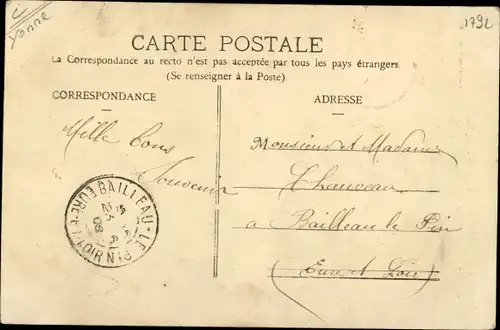 Yonne
1792
CARTE POSTALE
La Correspondance au recto n'est pas acceptée par tous les pays étrangers.
(Se renseigner à la Poste)
CORRESPONDANCE
ADRESSE
Mille bons
Souvenir
Monsieur et Madame
Chauveau
a Bailleau le Pin
(Eure et Loir)
BAILLEAU-LE-PIN
EURE-ET-LOIR